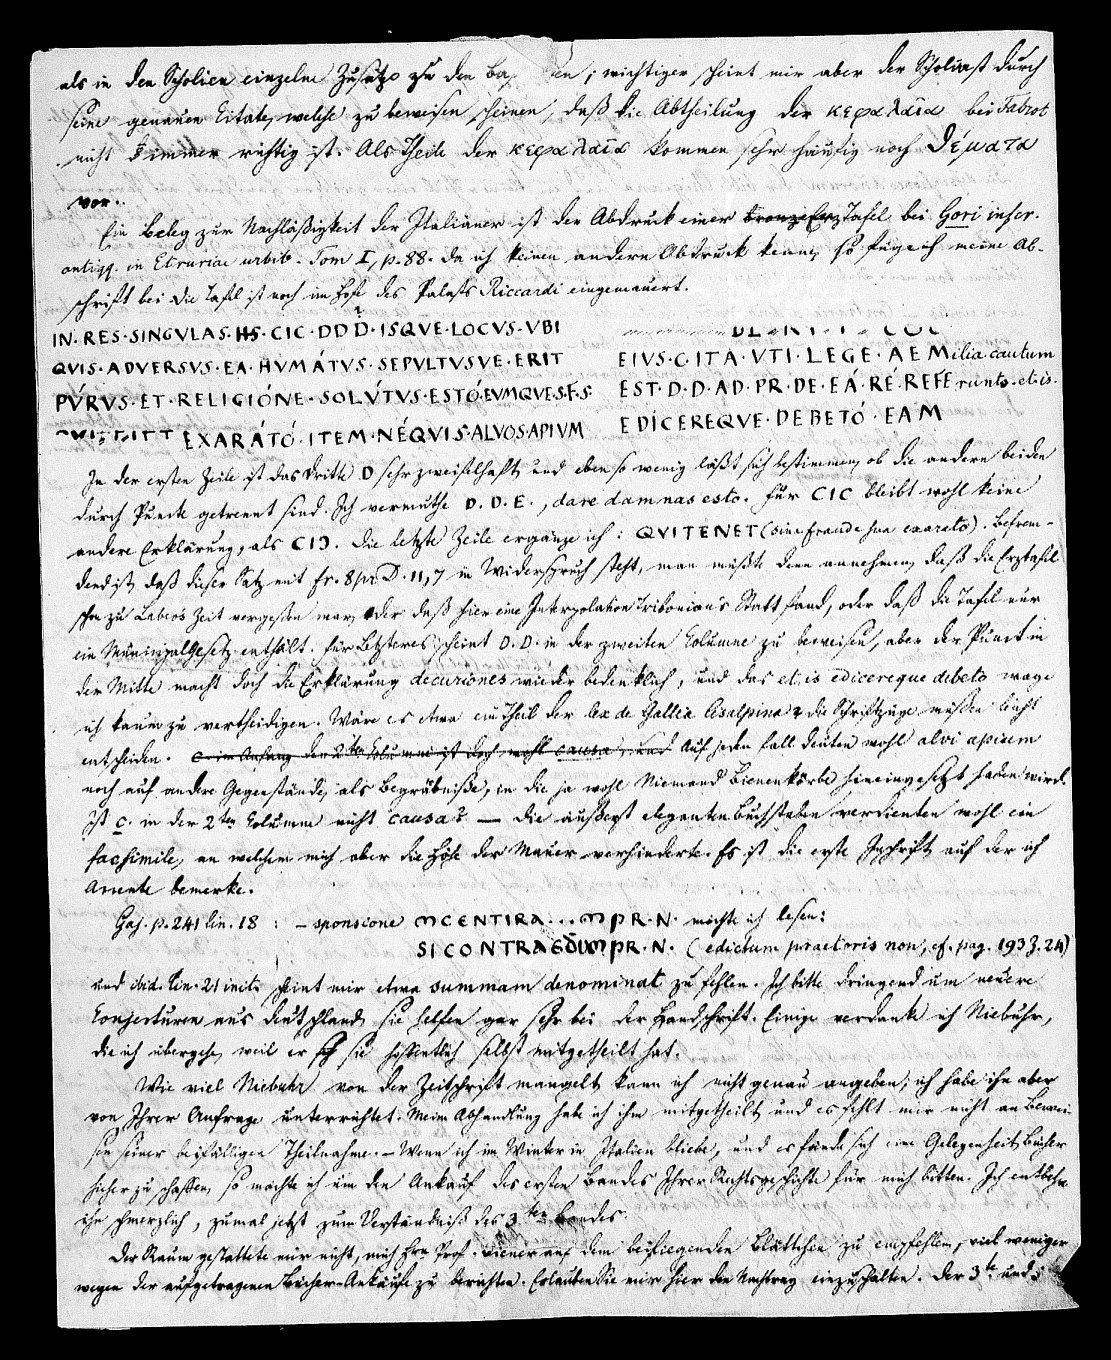 als in den Scholien einzelne Zusätze zu den Ba en; wichtiger scheint mir aber der Scholiast durch
seine genauen Citate, welche zu beweisen scheinen, daß die Abtheilung der κεφαλαῖα bei Fabrot
nicht immer richtig ist. Als Theile der κεφαλαῖα kommen sehr häufig noch θέματα
vor.
Ein Beleg zur Nachläßigkeit der Italiäner ist der Abdruck einer bronze Erz Tafel bei Gori inscr.
antiqq. in Etruriae urbib. Tom I, p. 88. Da ich keinen andern Abdruck kenne, so füge ich meine Ab-
schrift bei. Die Tafel ist noch im Hofe des Palasts Riccardi eingemauert.
IN·RES·SINGVLAS·HS·CIC·DDD·ISQVE·LOCVS·VBI
QVIS·ADVERSVS·EA·HVMÁTVS·SEPVLTVSVE·ERIT
PÚRVS·ET·RELIGIÓNE·SOLÚTVS·ESTÓ·EVMQVE·S·F·S·
EXARÁTÓ·ITEM·NÉQVIS·ALVOS·APIVM
EIVS·C·ITA·VTI·LEGE·AEMilia cautum
EST·D·D·AD·PR·DE·EÁ·RÉ·REFErunto·et·is·
EDÍCEREQVE·DEBETÓ·EAM
In der ersten Zeile ist das dritte D sehr zweifelhaft, und eben so wenig läßt sich bestimmen, ob die andern beiden
durch Puncte getrennt sind. Ich vermuthe D.D.E., dare damnas esto. Für CIC bleibt wohl keine
andere Erklärung, als CIƆ. Die letzte Zeile ergänze ich: QVITENET (sine fraude sua exarato). Befrem-
dend ist, daß dieser Satz mit fr. 8 pr. D. 11,7 in Widerspruch steht, man müßte denn annehmen, daß die Erztafel
schon zu Labeo's Zeit vergessen war, oder daß hier eine Interpolation Tribonian's Statt fand, oder daß die Tafel nur
ein Municipalgesetz enthält. Für Letzteres scheint D.D. in der zweiten Columne zu beweisen, aber der Punct in
der Mitte macht doch die Erklärung decuriones wieder bedenklich, und das et, is edicereque debeto wage
ich kaum zu vertheidigen. Wäre es etwa ein Theil der lex de Gallia Cisalpina? die Schriftzüge müßten leicht
entscheiden. C im Anfang der 2ten Columne ist doch wohl causa, und Auf jeden Fall deuten wohl alvi apium
noch auf andere Gegenstände, als Begräbniße, in die ja wohl Niemand Bienenkörbe hineingesetzt haben wird.
Ist C. in der 2ten Columne nicht causa? — Die äußerst eleganten Buchstaben verdienten wohl ein
facsimile, an welchem mich aber die Höhe der Mauer verhinderte. Es ist die erste Inschrift auf der ich
Accente bemerke.
Gaj. p. 241 lin. 18: – sponsione MCENTIRA...MPR·N· möchte ich lesen:
SICONTRAEDIMPR·N. (edictum praetoris non, cf. pag. 193 Z. 24)
und ibid. lin. 21 init. scheint mir etwa summam denominat zu fehlen. Ich bitte dringend um neuere
Conjecturen aus Deutschland, sie helfen gar sehr bei der Handschrift. Einige verdanke ich Niebuhr,
die ich übergehe, weil er sie hoffentlich selbst mitgetheilt hat.
Wie viel Niebuhr von der Zeitschrift mangelt kann ich nicht genau angeben; ich habe ihn aber
von Ihrer Anfrage unterrichtet. Meine Abhandlung habe ich ihm mitgetheilt, und es fehlt mir nicht an Bewei-
sen seiner beifälligen Theilnahme. – Wenn ich im Winter in Italien bliebe, und es fände sich eine Gelegenheit Bücher
hieher zu schaffen, so möchte ich um den Ankauf des ersten Bandes Ihrer Rechtsgeschichte für mich bitten. Ich entbehre
ihn schmerzlich, zumal jetzt zum Verständniß des 3ten Bandes.
Der Raum gestattete mir nicht, mich Hrn Prof. auf dem beiliegenden Blättchen zu empfehlen, viel weniger
wegen der aufgetragenen Bücher-Ankäufe zu berichten. Erlauben Sie mir hier den Nachtrag einzuschalten. Der 3te und